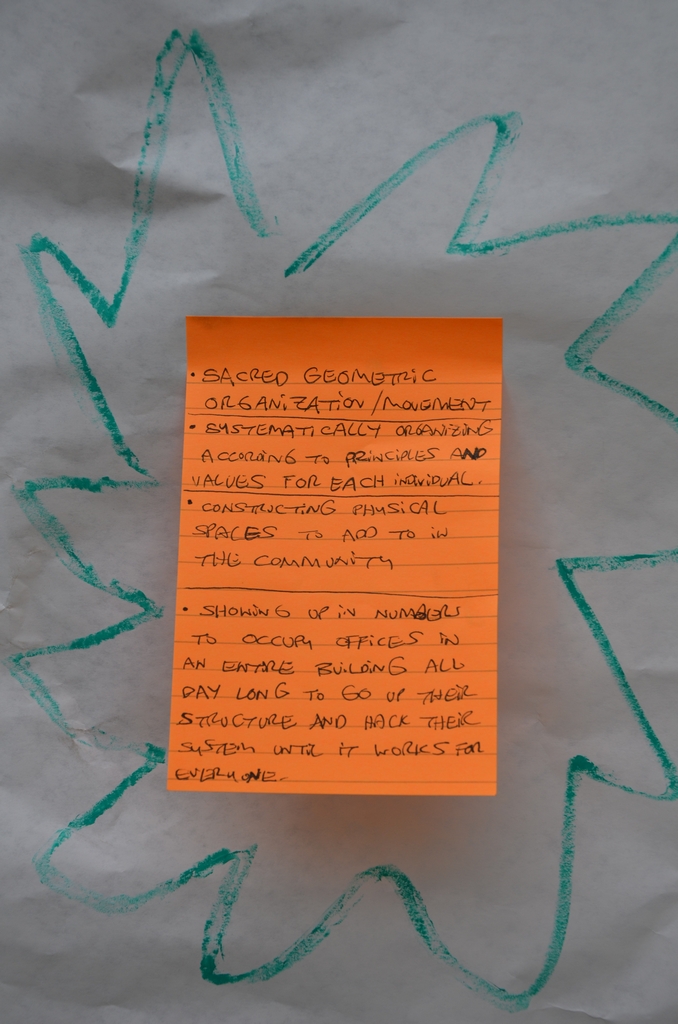 • SACRED GEOMETRIC
ORGANIZATION/MOVEMENT
• SYSTEMATICALLY ORGANIZING
ACCORDING TO PRINCIPLES AND
VALUES FOR EACH INDIVIDUAL.
• CONSTRUCTING PHYSICAL
SPACES TO ADD TO IN
THE COMMUNITY
• SHOWING UP IN NUMBERS
TO OCCUPY OFFICES IN
AN ENTIRE BUILDING ALL
DAY LONG TO GO UP THEIR
STRUCTURE AND HACK THEIR
SYSTEM UNTIL IT WORKS FOR
EVERYONE.